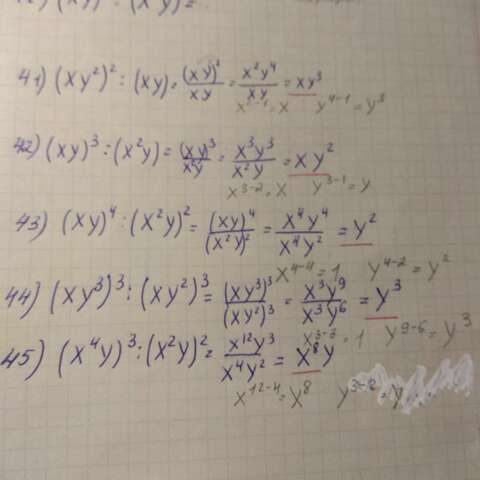 ) : (xy) =
41) (xy²)² : (xy) = (xy)²/xy = x²y⁴/xy = xy³
x²⁻¹ = x y⁴⁻¹ = y³
42) (xy)³ : (x²y) = (xy)³/x²y = x³y³/x²y = xy²
x³⁻² = x y³⁻¹ = y
43) (xy)⁴ : (x²y)² = (xy)⁴/(x²y)² = x⁴y⁴/x⁴y² = y²
x⁴⁻⁴ = 1 y⁴⁻² = y²
44) (xy³)³ : (xy²)³ = (xy³)³/(xy²)³ = x³y⁹/x³y⁶ = y³
x³⁻³ = 1 y⁹⁻⁶ = y³
45) (x⁴y)³ : (x²y)² = x¹²y³/x⁴y² = x⁸y
x¹²⁻⁴ = x⁸ y³⁻² = y